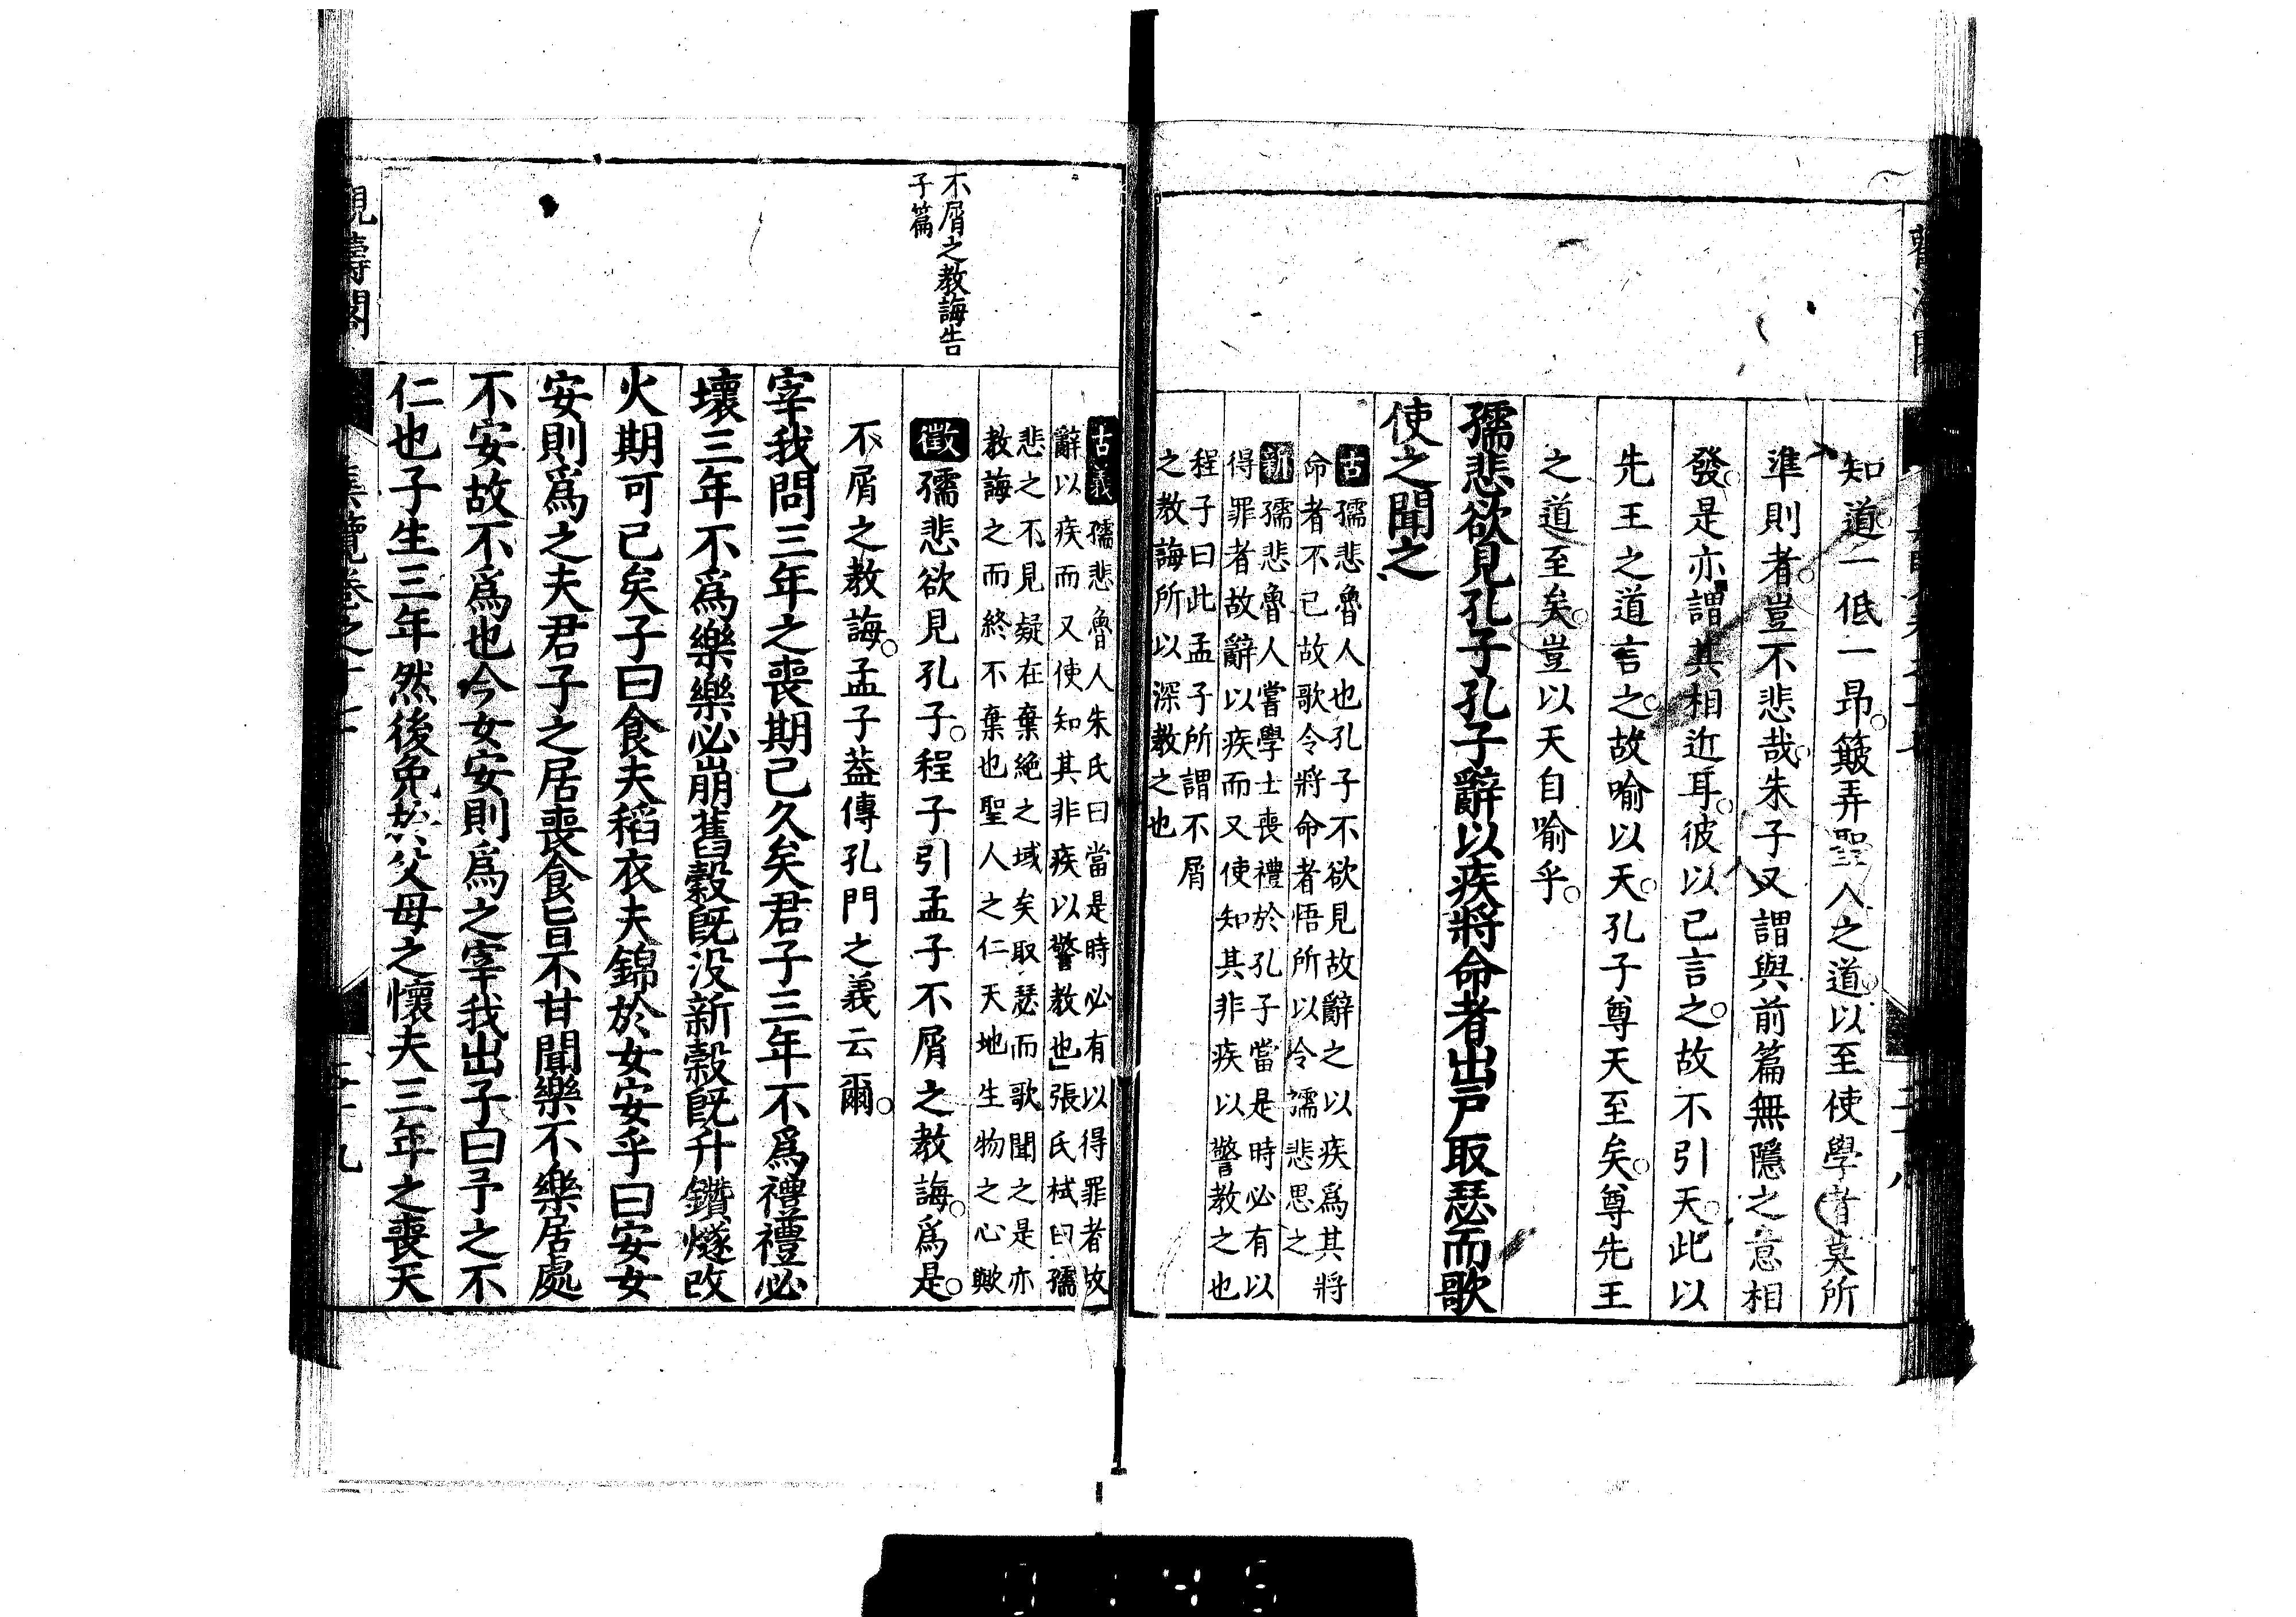 知道一低一昂簸弄聖人之道以至使學者莫所
準則者豈不悲哉朱子又謂與前篇無隱之意相
發是亦謂其相近耳彼以己言之故不引天此以
先王之道言之故喻以天孔子尊天至矣尊先王
之道至矣豈以天自喻乎
孺悲欲見孔子孔子辭以疾將命者出戸取瑟而歌
使之聞之
古孺悲魯人也孔子不欲見故辭之以疾爲其將
命者不已故歌令將命者悟所以令孺悲思之
新孺悲魯人嘗學士喪禮於孔子當是時必有以
得罪者故辭以疾而又使知其非疾以警教之也
程子曰此孟子所謂不屑
之教誨所以深教之也
不屑之教誨告
子篇
古義孺悲魯人朱氏曰當是時必有以得罪者故
辭以疾而又使知其非疾以警教也」張氏栻曰孺
悲之不見疑在棄絶之域矣取瑟而歌聞之是亦
教誨之而終不棄也聖人之仁天地生物之心歟
徵孺悲欲見孔子程子引孟子不屑之教誨爲是
不屑之教誨孟子葢傳孔門之義云爾
宰我問三年之喪期已久矣君子三年不爲禮禮必
壞三年不爲樂樂必崩舊穀既没新穀既升鑽燧改
火期可已矣子曰食夫稻衣夫錦於女安乎曰安女
安則爲之夫君子之居喪食旨不甘聞樂不樂居處
不安故不爲也今女安則爲之宰我出子曰予之不
仁也子生三年然後免於父母之懷夫三年之喪天
觀濤閣
集覽卷之十七
二十九